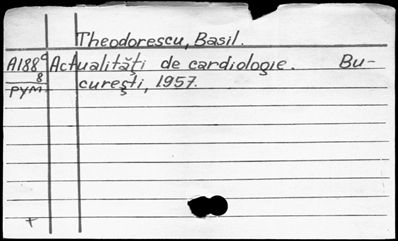 Theodorescu, Basil.
A188c Actualităţi de cardiologie. Bu-
8 cureşti, 1957.
рум.
+